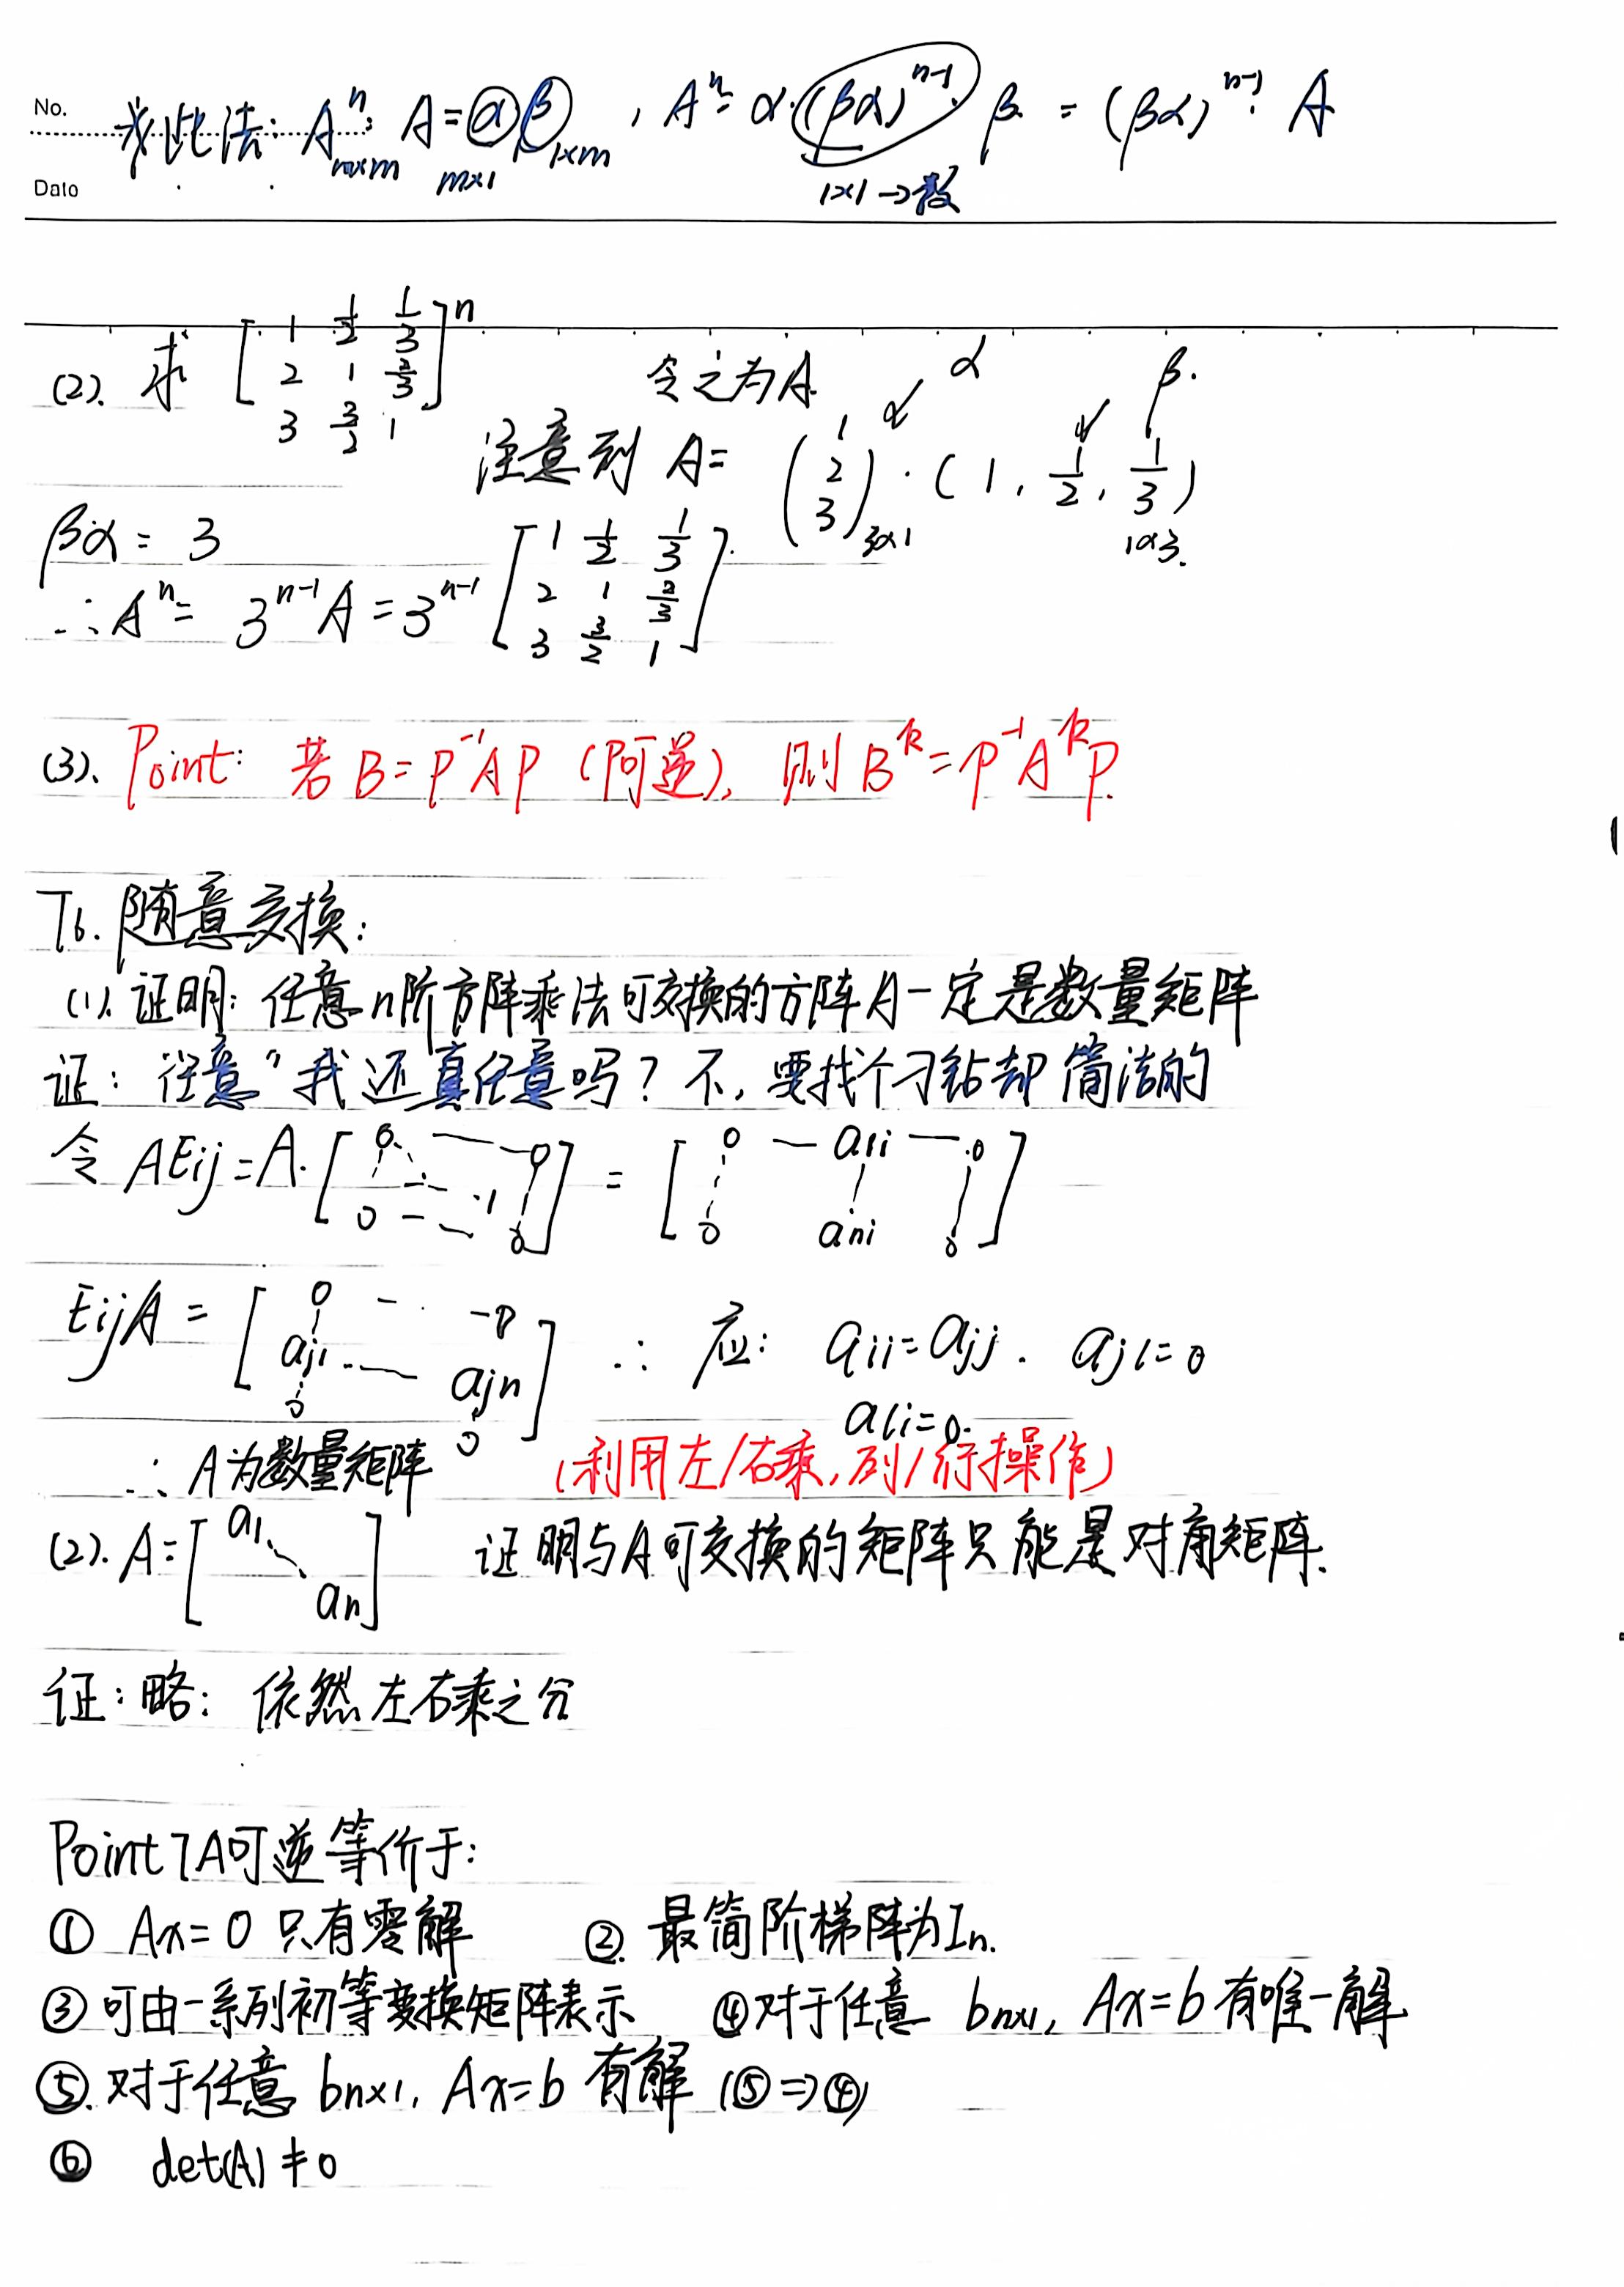 No.
Date
求此法: Aⁿ_{m×m}: A=α_{m×1}β_{1×m}, Aⁿ= α·(βα)ⁿ⁻¹·β = (βα)ⁿ⁻¹·A
1×1→数
(2). 求 [1 1/2 1/3; 2 1 2/3; 3 3/2 1]ⁿ 令之为A.
α β.
注意到 A= (1 2 3)_{3×1} · (1, 1/2, 1/3)_{1×3}.
βα = 3
∴Aⁿ= 3ⁿ⁻¹A = 3ⁿ⁻¹ [1 1/2 1/3; 2 1 2/3; 3 3/2 1].
(3). Point: 若 B=P⁻¹AP (P可逆), 则 Bᵏ=P⁻¹AᵏP.
T6. 随意交换:
(1). 证明: 任意n阶方阵乘法可交换的方阵A一定是数量矩阵
证: 任意" 我还真任意吗? 不, 要找个刁钻却简洁的
令 AEij=A·[0 0; 1; 0 0] = [0 — a1i — 0; 0 ani 0]
EijA = [0 - - 0; aj1 — ajn; 0 0] ∴ 应: aii=ajj. aji=0
ali=0.
∴ A为数量矩阵 (利用左/右乘, 列/行操作)
(2). A=[a1 ⋱ an] 证明与A可交换的矩阵只能是对角矩阵.
证: 略: 依然左右乘之分
Point7A可逆等价于:
① Ax=0 只有零解 ②. 最简阶梯阵为In.
③ 可由一系列初等变换矩阵表示 ④对于任意 bn×1, Ax=b有唯一解
⑤. 对于任意 bn×1, Ax=b 有解 (⑤⇒④)
⑥ det(A)≠0